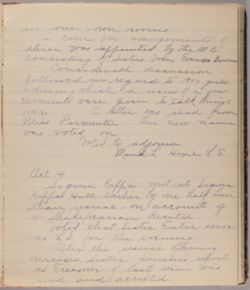 in our own rooms.
A com. for arrangements of
three was appointed by the M.C.
consisting of Sisters
Considerable discussion
followed in regard to
during which a recess of a few
moments was given to talk things
over. A letter was read from
Miss Parmenter. One new name
was voted on.
Voted to adjourn
Hoxie C.S.
Oct 14
Sigma Kappa met at Sigma
Kappa Hall
than usual on account of
a Shakesperian Recital
Voted that Sister Foster serve
as for the evening.
After the usual Literary
exercises Sister report
as Treasurer of last term was
read and accepted.